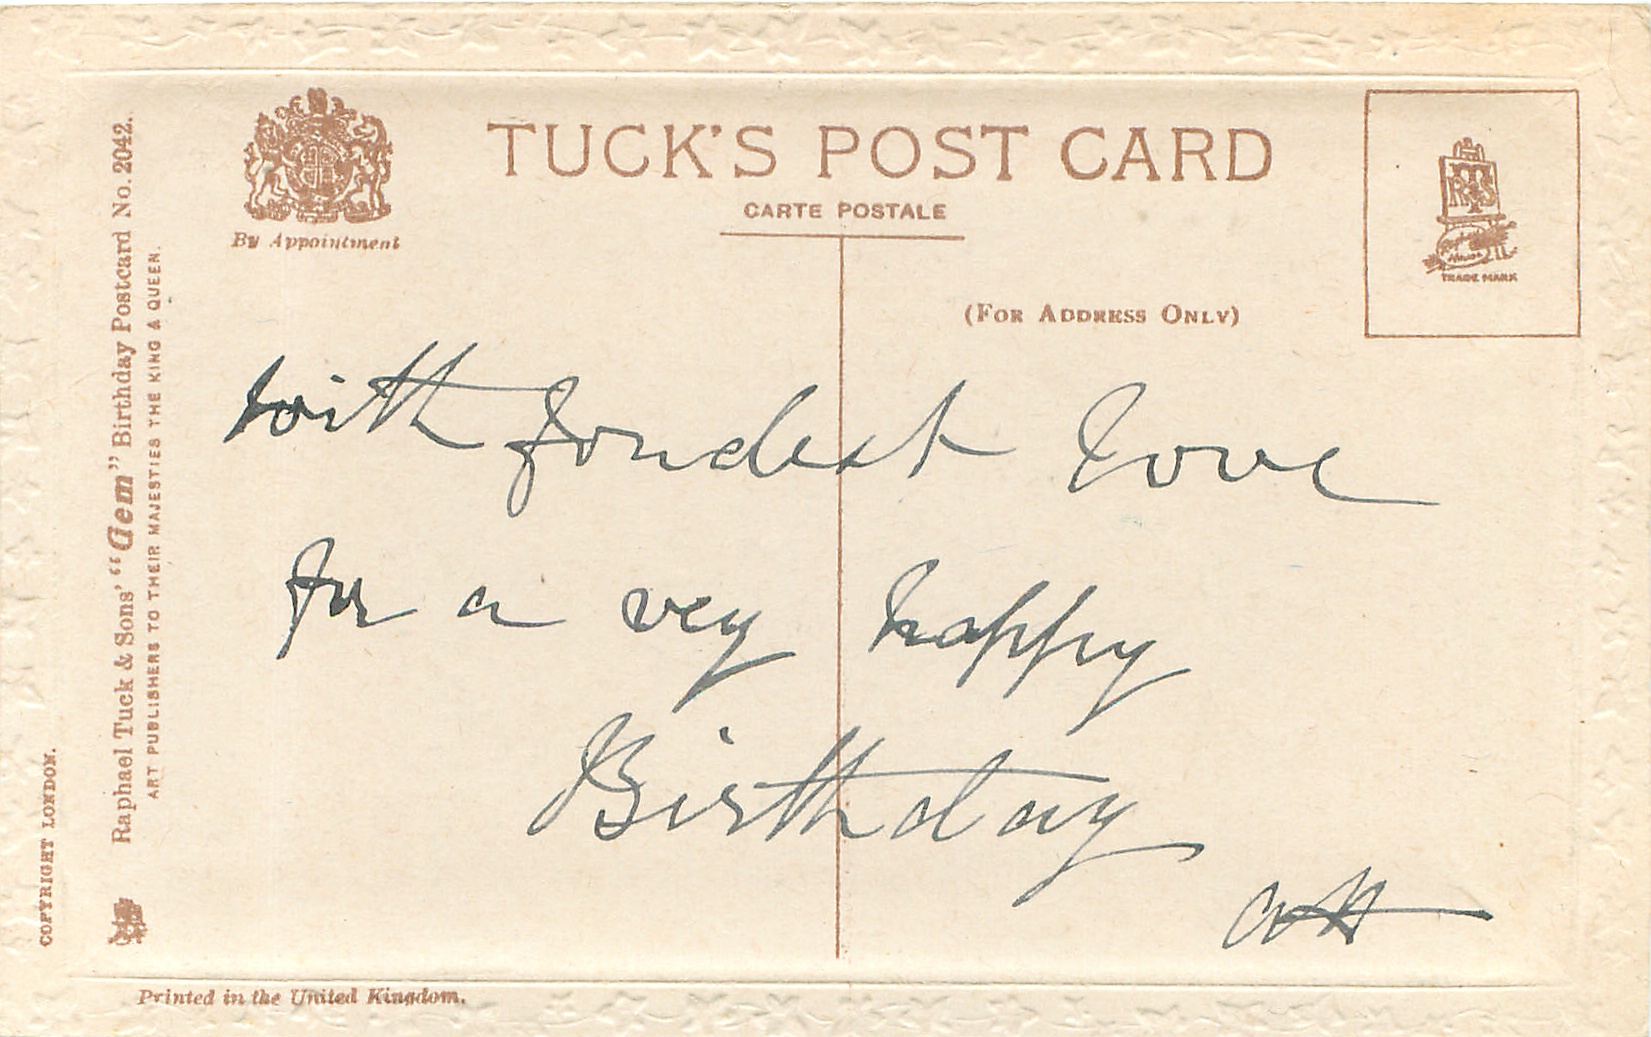 TUCK'S POST CARD
CARTE POSTALE
By Appointment
(FOR ADDRESS ONLY)
RTS
TRADE MARK
with fondest love
for a very happy
Birthday
Raphael Tuck & Sons' "Gem" Birthday Postcard No. 2042.
ART PUBLISHERS TO THEIR MAJESTIES THE KING & QUEEN.
COPYRIGHT LONDON.
Printed in the United Kingdom.